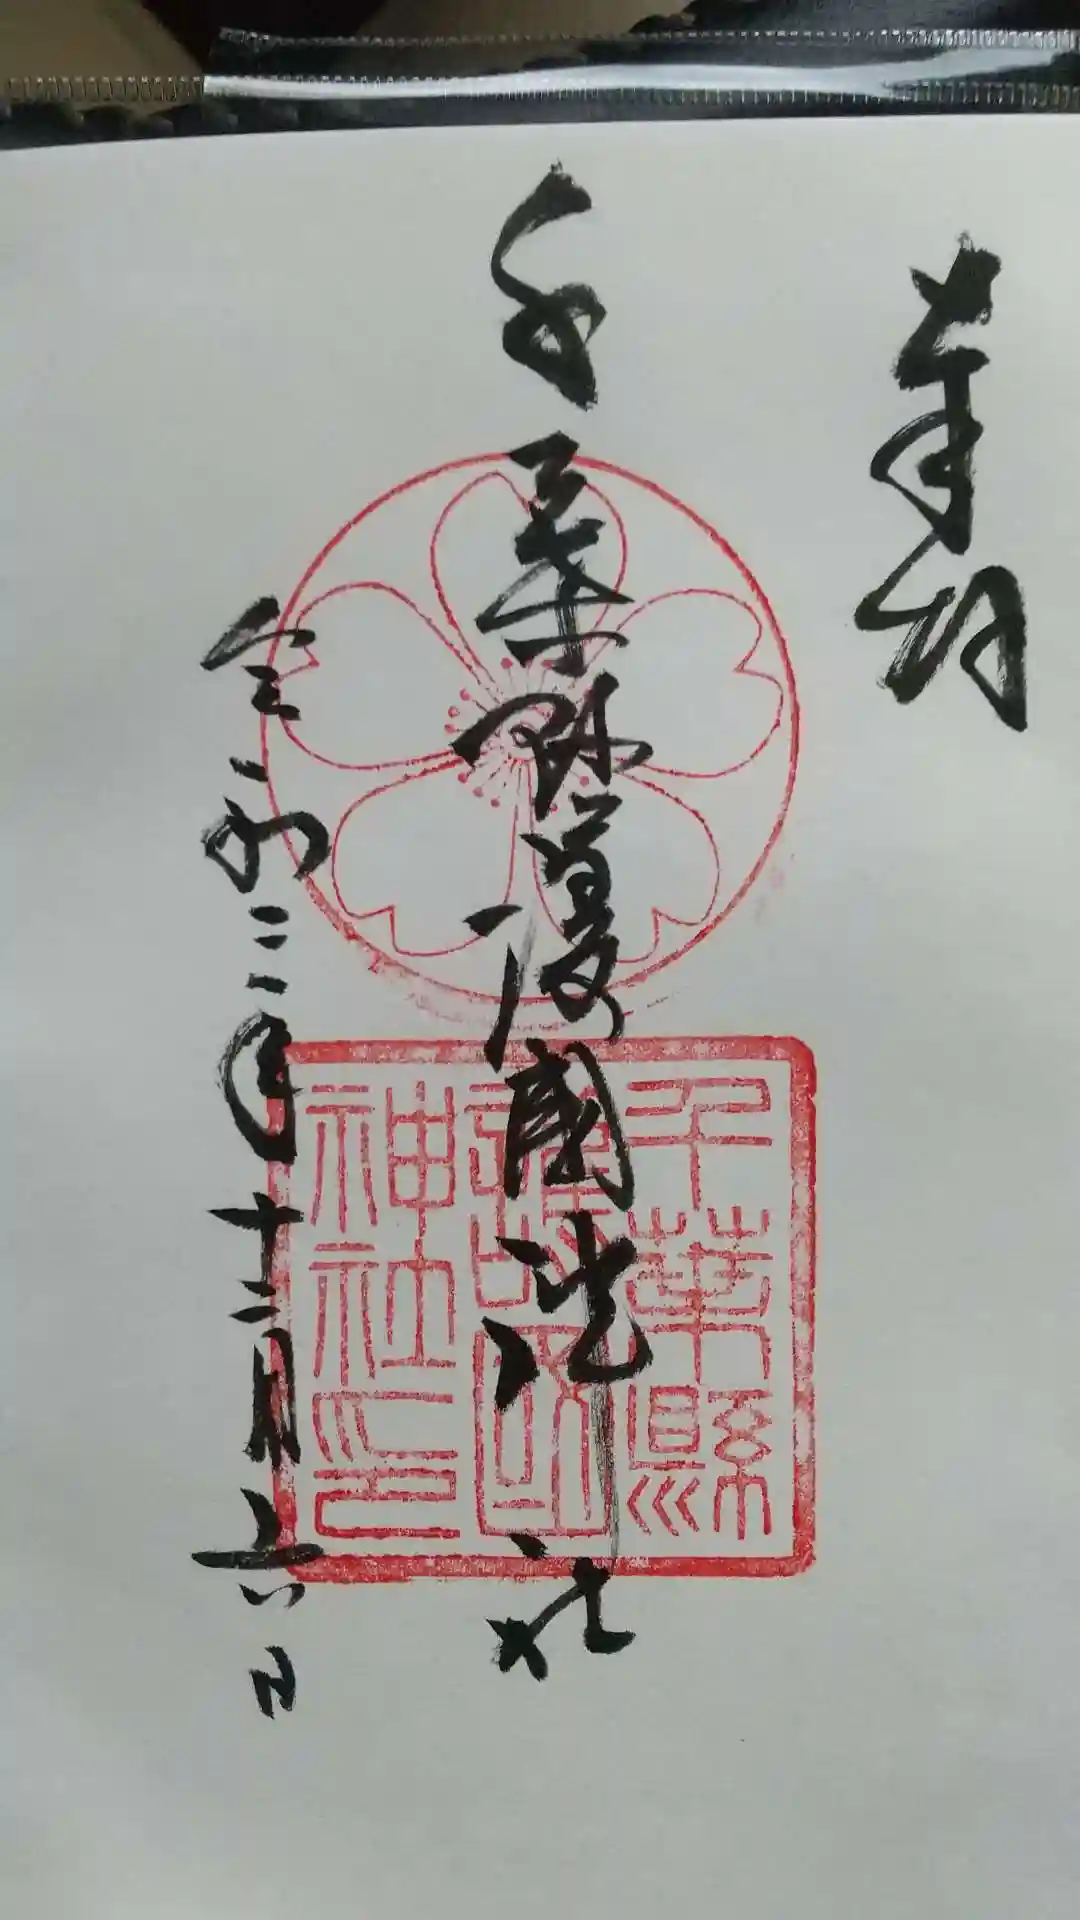 奉拝
千葉縣護國神社
令和二年十二月六日
千葉縣
護國
神社印